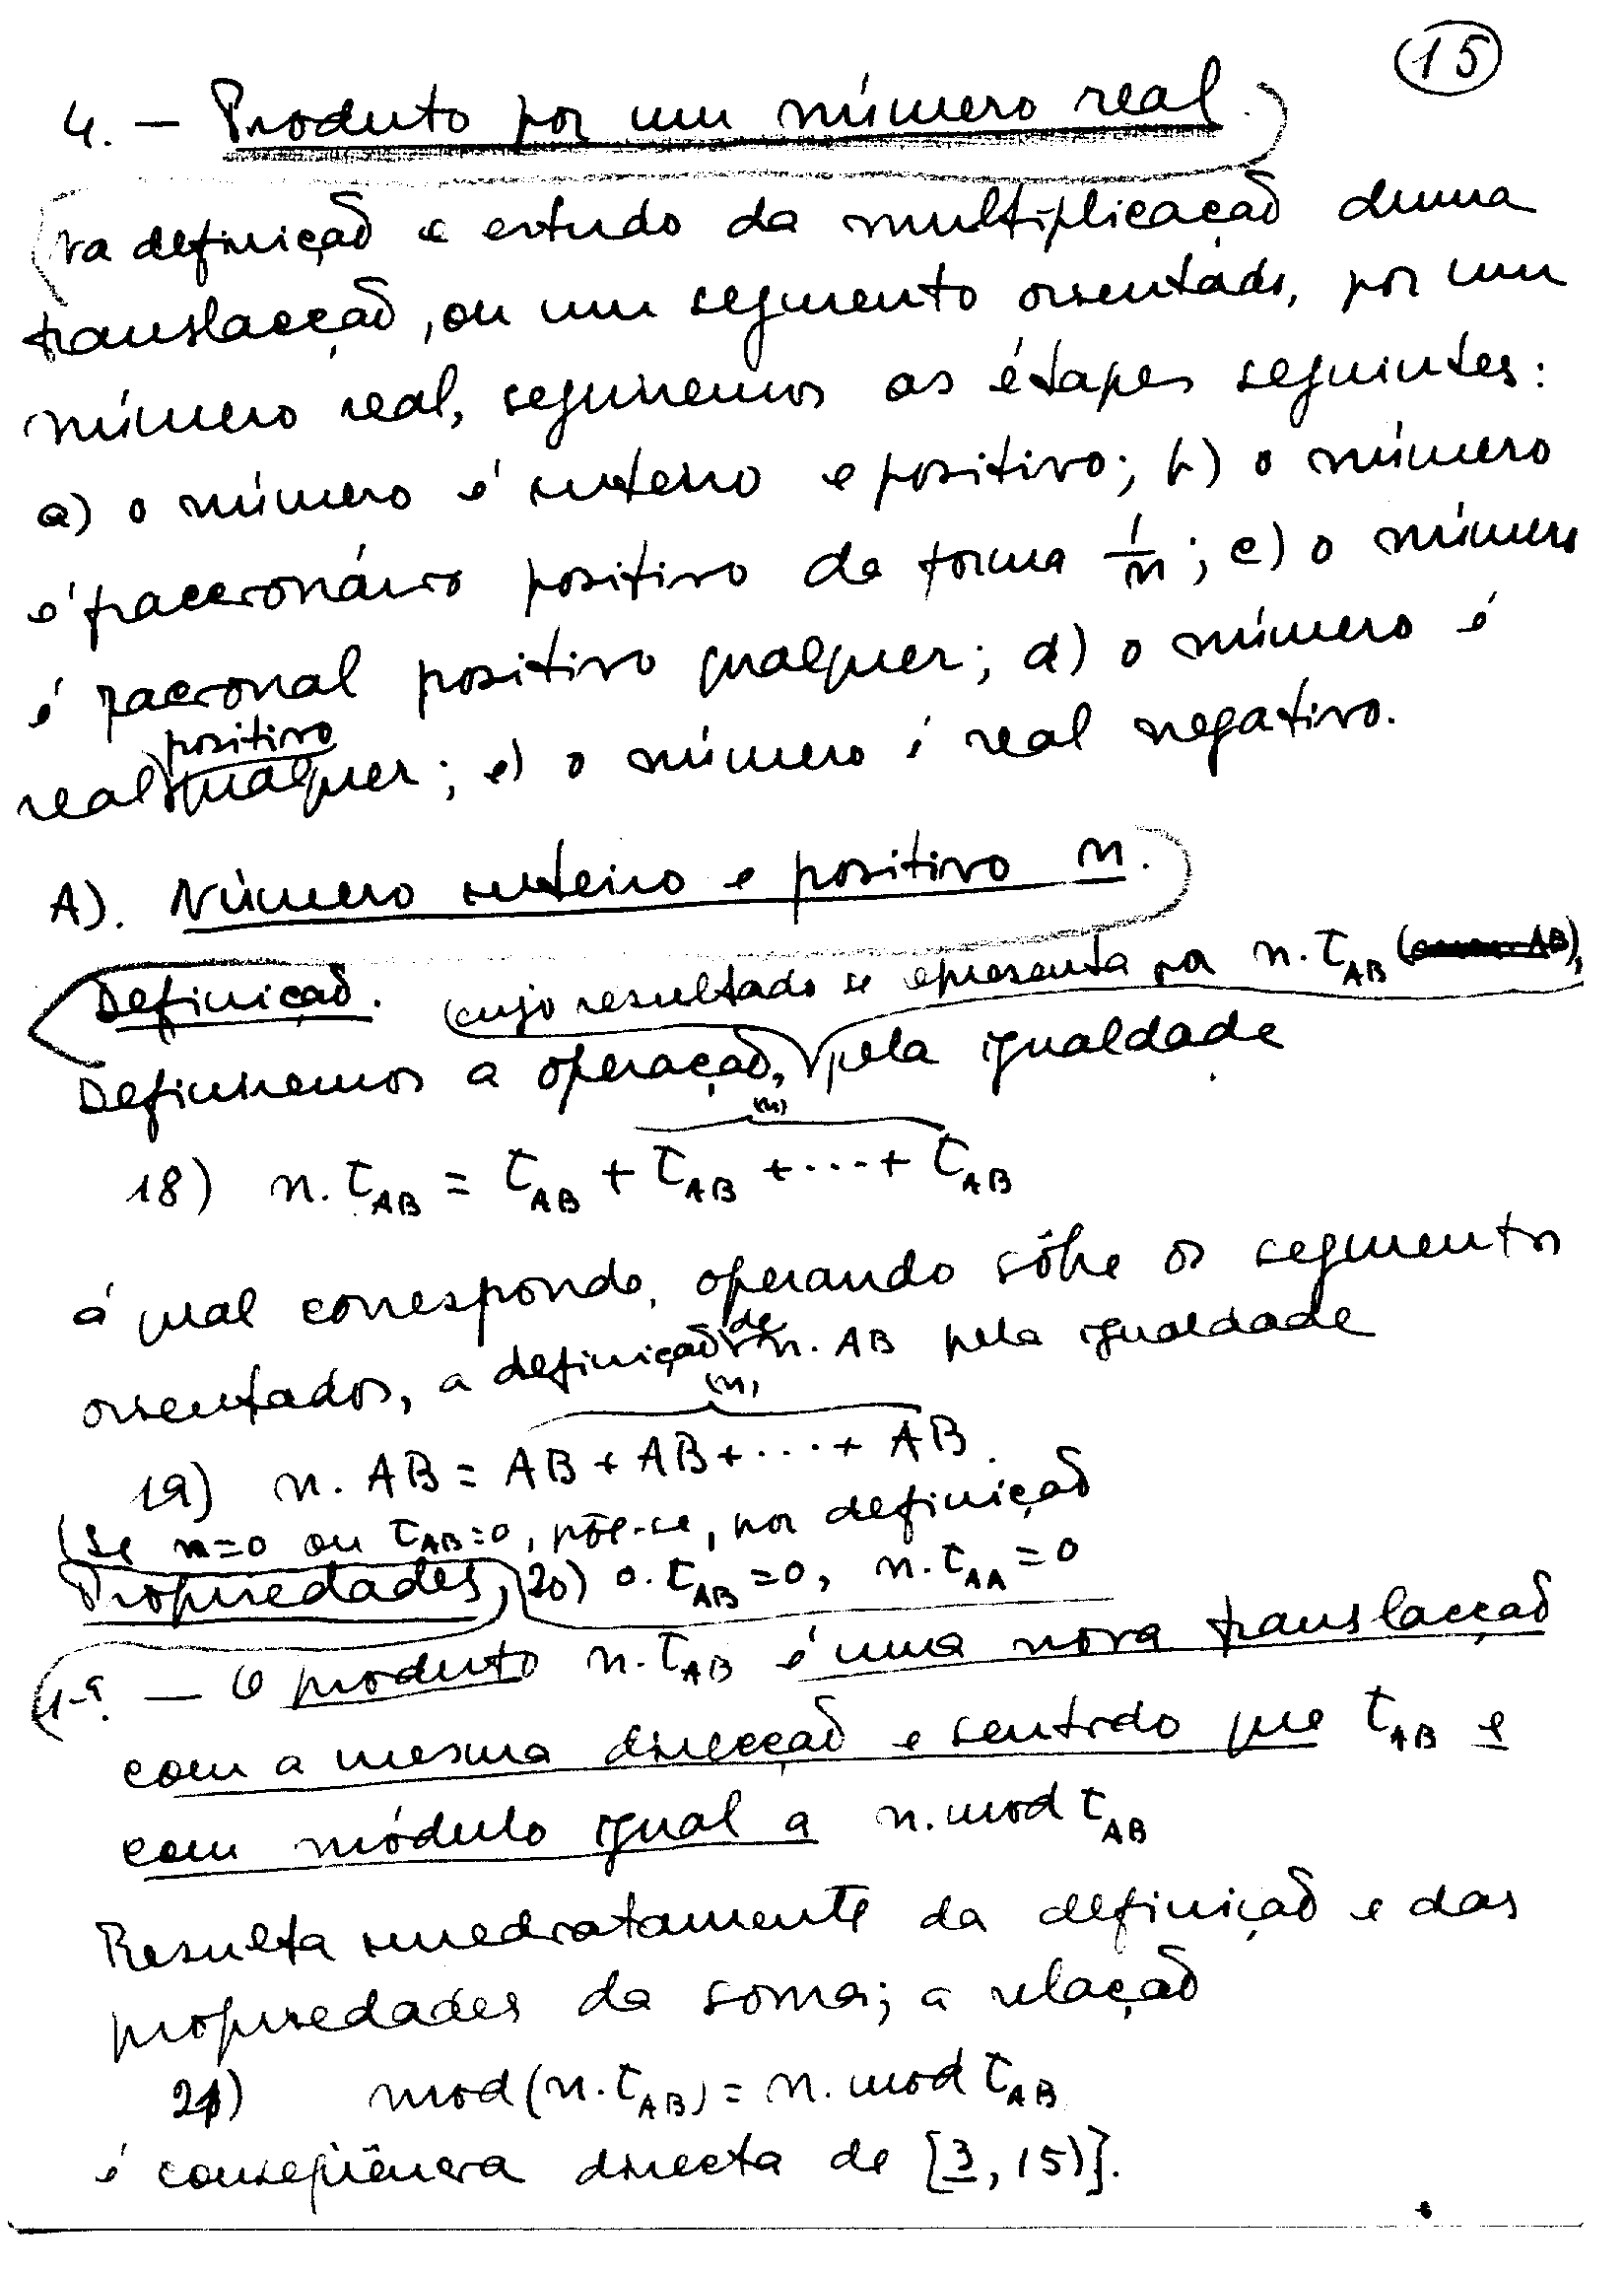 15
4. — Produto por um número real.
Na definição e estudo da multiplicação duma
translacção, ou um segmento orientado, por um
número real, seguiremos as étapes seguintes:
a) o número é inteiro e positivo; b) o número
é fraccionário positivo da forma 1/n; c) o número
é racional positivo qualquer; d) o número é
real positivo qualquer; e) o número é real negativo.
A). Número inteiro e positivo n.
Definição. (cujo resultado se representa por n.τAB
Definiremos a operação, pela igualdade
18) n.τAB = τAB + τAB + ··· + τAB (n)
á qual corresponde, operando sôbre os segmentos
orientados, a definição de n.AB pela igualdade
19) n.AB = AB + AB + ··· + AB (n)
Se n=0 ou τAB=0, põe-se, por definição
20) 0.τAB = 0, n.τAA = 0
Propriedades,
1-ª. — O produto n.τAB é uma nova translacção
com a mesma direcção e sentido que τAB e
com módulo igual a n.mod τAB
Resulta imediatamente da definição e das
propriedades da soma; a relação
21) mod(n.τAB) = n.mod τAB
é conseqüência directa de [3, 15)].